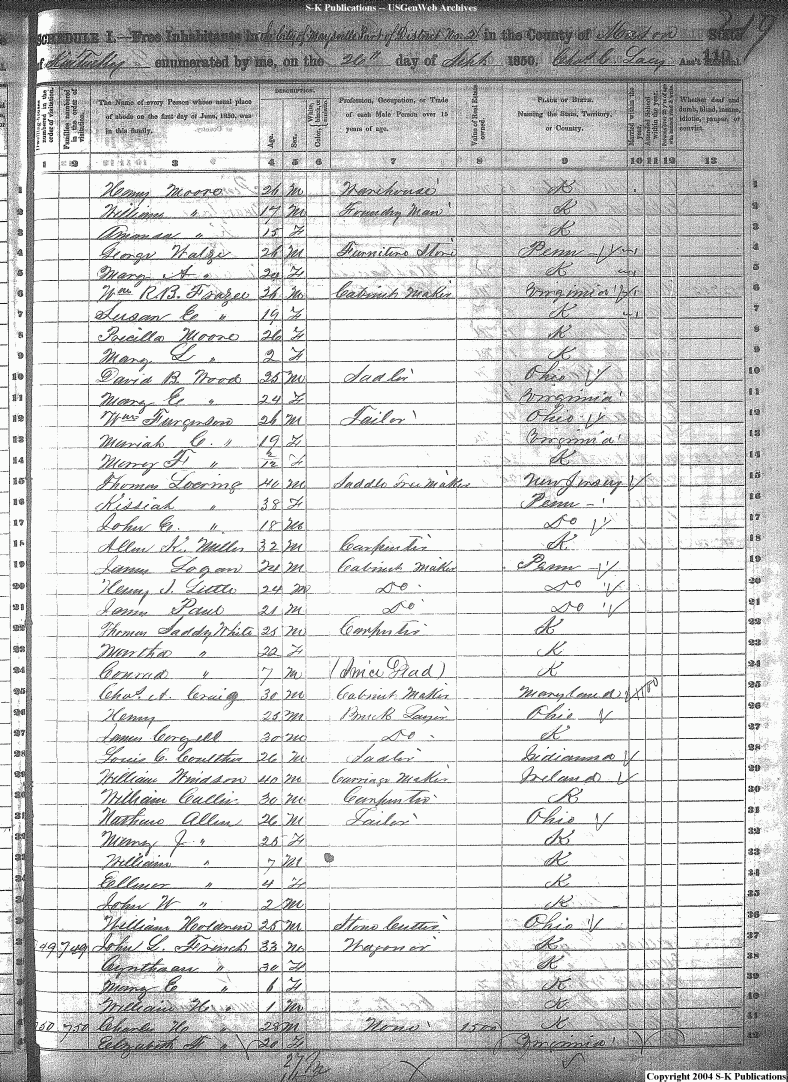 S-K Publications -- USGenWeb Archives
SCHEDULE I.—Free Inhabitants in City of Maysville Part of District No. 2 in the County of Mason State
of Kentucky enumerated by me, on the 26th day of Sept 1850. Chas C. Lacy Ass't Marshal.
219
110
Dwelling-houses numbered in the order of visitation.
Families numbered in the order of visitation.
The Name of every Person whose usual place of abode on the first day of June, 1850, was in this family.
DESCRIPTION.
Age.
Sex.
Color,
Profession, Occupation, or Trade of each Male Person over 15 years of age.
Value of Real Estate owned.
PLACE OF BIRTH. Naming the State, Territory, or Country.
Married within the year.
Whether deaf and dumb, blind, insane, idiotic, pauper, or convict.
1 2 3 4 5 6 7 8 9 10 11 12 13
1 Henry Moore 26 M Warehouse K 1
2 William " 17 M Foundry Man K 2
3 Amanda " 15 F K 3
4 George Walze 26 M Furniture Store Penn 4
5 Mary A " 20 F K 5
6 Wm R.B. Frazee 26 M Cabinet Maker Virginia 6
7 Susan E " 19 F K 7
8 Pricilla Moore 26 F K 8
9 Mary L " 2 F K 9
10 David B. Wood 25 M Sadler Ohio 10
11 Mary E " 24 F Virginia 11
12 Wm Furgerson 26 M Tailor Ohio 12
13 Mariah C. " 19 F Virginia 13
14 Mary F. " 2/12 F K 14
15 Thomas Loering 40 M Saddle Tree Maker New Jersey 15
16 Kissiah " 38 F Penn 16
17 John E. " 18 M Do 17
18 Allen K. Miller 32 M Carpenter K 18
19 James Logan 24 M Cabinet Maker Penn 19
20 Henry J. Little 24 M Do Do 20
21 James Paul 21 M Do Do 21
22 Thomas Saddy White 25 M Carpenter K 22
23 Martha " 22 F K 23
24 Conrad " 7 M K 24
25 Chas. A. Craig 30 M Cabinet Maker Maryland 25
26 Henry 25 M Brick Layer Ohio 26
27 James Corzell 30 M Do K 27
28 Louis C. Coulther 26 M Sadler Indianna 28
29 William Davidson 40 M Carriage Maker Ireland 29
30 William Callin 30 M Carpenter K 30
31 Allen 26 M Tailor Ohio 31
32 Mary J. " 25 F K 32
33 William " 7 M K 33
34 Ellenor " 4 F K 34
35 John W " 2 M K 35
36 William Holdren 25 M Stone Cutter Ohio 36
749 749 John L. French 33 M Wagoner K 37
38 Cynthaan " 30 F K 38
39 Mary E " 6 F K 39
40 William H. " 1 M K 40
750 750 Charles H. " 28 M None 1500 K 41
42 Elizabeth " 20 F Virginia 42
Copyright 2004 S-K Publications